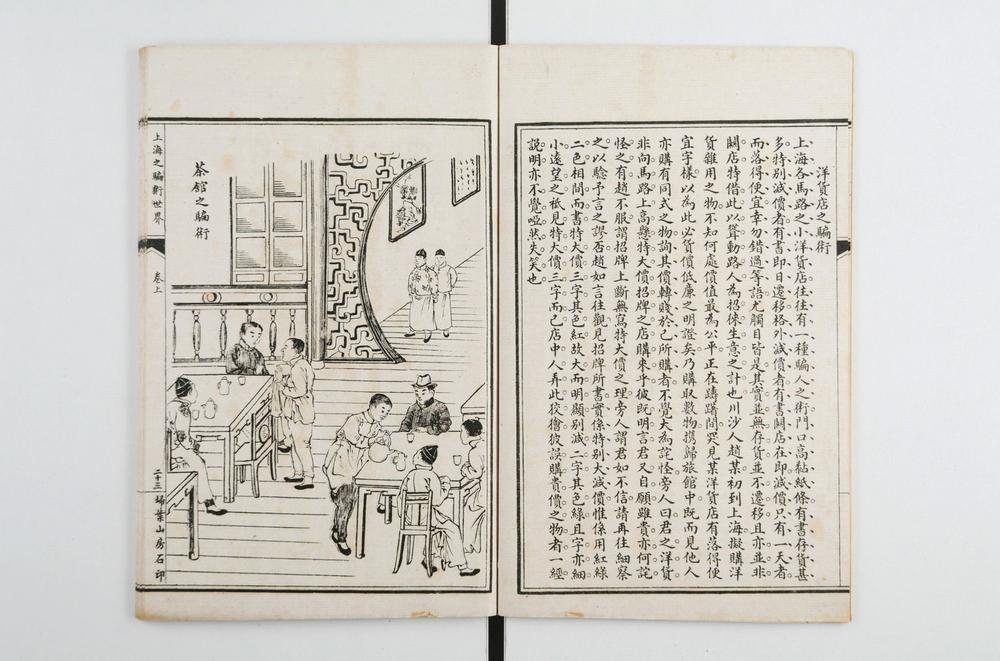 洋貨店之騙術
上海各馬路之小洋貨店往往有一種騙人之術門口高黏紙條有書存貨甚
多特別減價者有書即日遷移格外減價者有書關店在即減價只有一天者
而落得便宜幸勿錯過等語尤觸目皆是其實並無存貨並不遷移且亦並非
關店特借此以聳動路人為招徠生意之計也川沙人趙某初到上海擬購洋
貨雜用之物不知何處價值最為公平正在躊躇間哭見某洋貨店有落得便
宜字樣以為此必貨價低廉之明證矣乃購取數物携歸旅館中既而見他人
亦購有同式之物詢其價轉賤於己所購者不覺大為詫怪旁人曰君之洋貨
非向馬路上高懸特大價招牌之店購來乎彼既明言君又自願雖貴亦何詫
怪之有趙不服謂招牌上斷無寫特大價之理旁人謂君如不信請再往細察
之以驗予言之謬否趙如言往觀見招牌所書實係特別大減價惟係用紅綠
二色相間而書特大價三字其色紅故大而明顯別減二字其色綠且字亦細
小遠望之祗見特大價三字而已店中人弄此狡獪彼誤購貴價之物者一經
說明亦不覺啞然失笑也
茶館之騙術
上海之騙術世界
卷上
二十三
埽葉山房石印